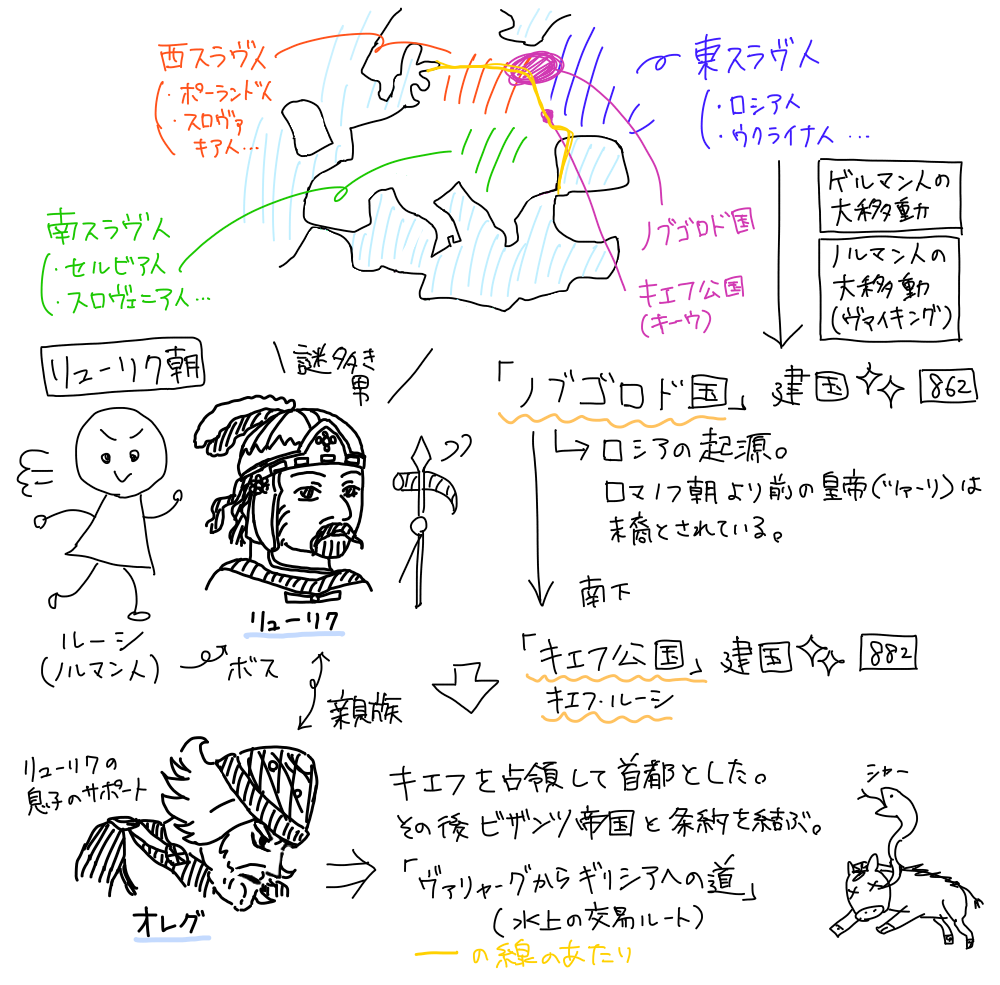 西スラヴ人
・ポーランド人
・スロヴァ
キア人…
東スラヴ人
・ロシア人
・ウクライナ人…
南スラヴ人
・セルビア人
・スロヴェニア人…
ノブゴロド国
キエフ公国
(キーウ)
ゲルマン人の
大移動
ノルマン人の
大移動
(ヴァイキング)
リューリク朝
謎多き
男
「ノブゴロド国」建国 862
ロシアの起源。
ロマノフ朝より前の皇帝(ツァーリ)は
末裔とされている。
南下
リューリク
ルーシ
(ノルマン人)
ボス
親族
「キエフ公国」建国 882
キエフ・ルーシ
リューリクの
息子のサポート
オレグ
キエフを占領して首都とした。
その後ビザンツ帝国と条約を結ぶ。
「ヴァリャーグからギリシアへの道」
(水上の交易ルート)
ーの線のあたり
シャー